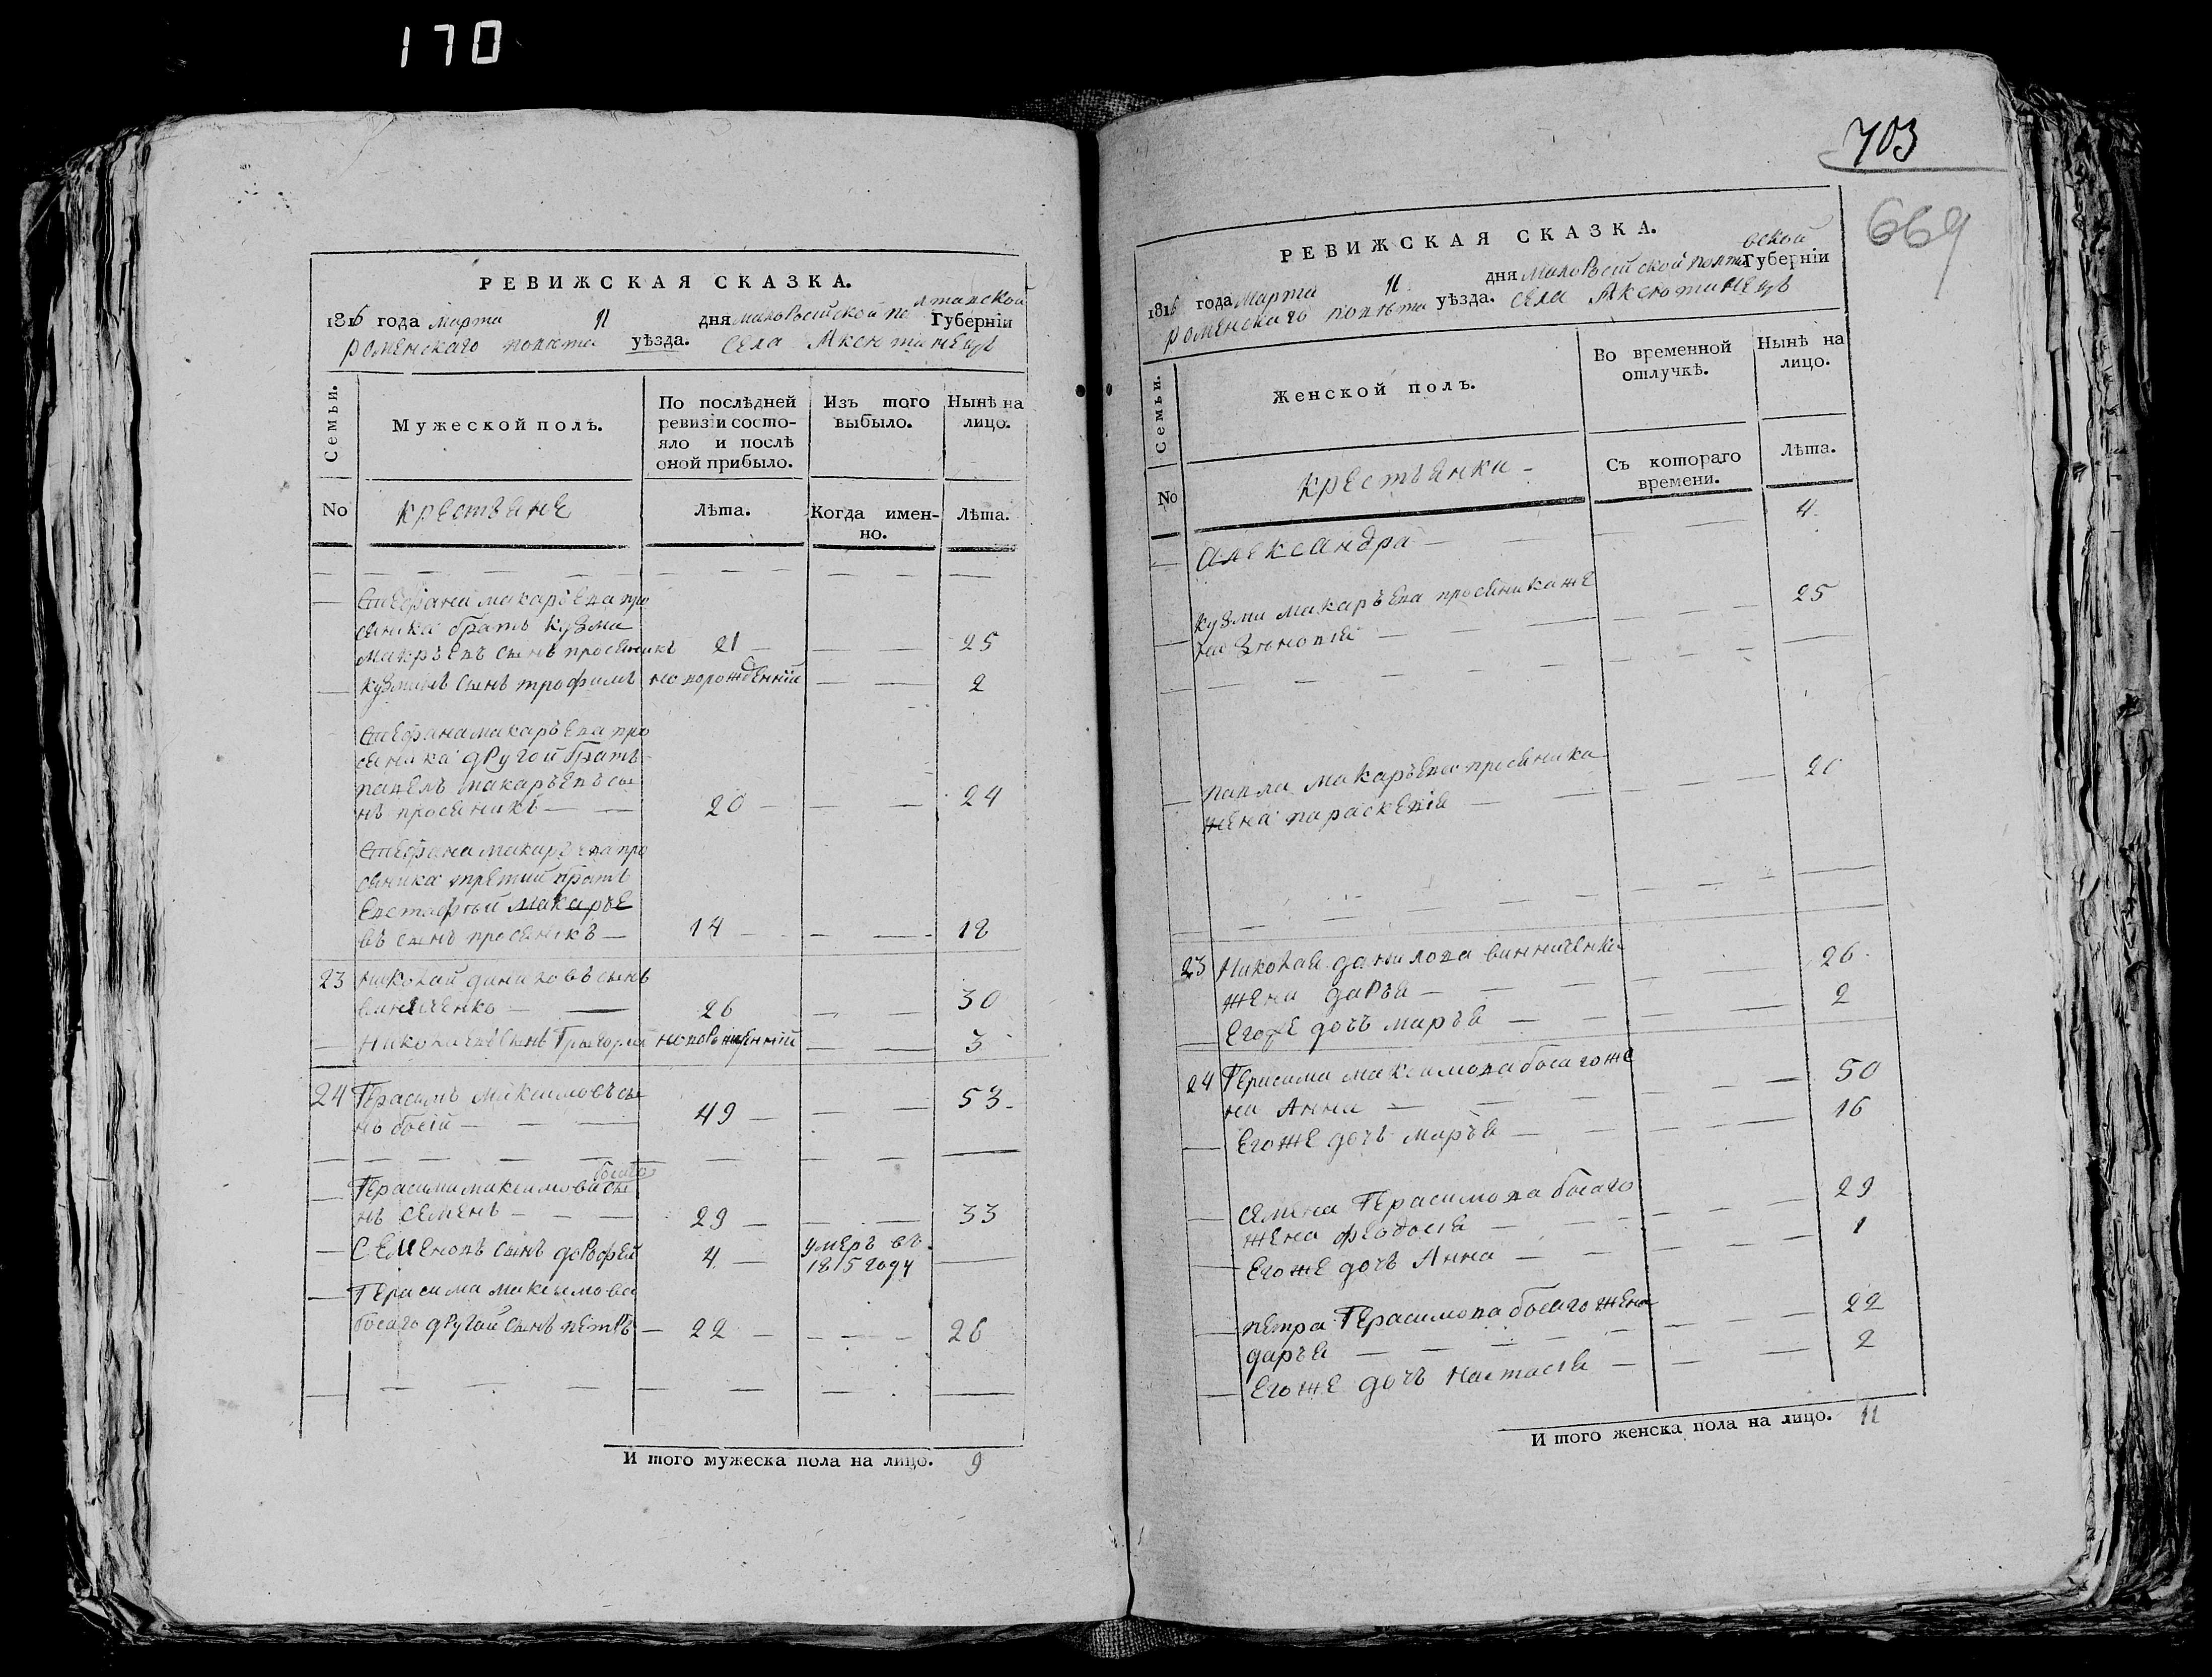 170
РЕВИЖСКАЯ СКАЗКА.
1816 года марта 11 дня малоРосийской полтавской Губерніи
роменского повѣта уѣзда. села Аксютинецъ
Семьи.
Мужеской полъ.
По послѣдней ревизіи состояло и послѣ оной прибыло.
Изъ того выбыло.
Нынѣ на лицо.
No
крестъяне
Лѣта.
Когда именно.
Лѣта.
Стефана макаръева про
сяника братъ кузма
макръевъ сынъ просяникъ 21 25
кузминъ сынъ трофимъ новорожденній 2
Стефана макаръева про
сяника другой братъ
павелъ макаръевъ сы
нъ просяникъ 20 24
Стефана макаръева про
сяника третий братъ
Евстафий макаръе
въ сынъ просяникъ 14 18
23 николай даниловъ сынъ
виниченко 26 30
николаевъ сынъ Григорий новорожденній 3
24 Герасимъ максимовъ сы
нъ босій 49 53
босаго
Герасима максимова сы
нъ семенъ 29 33
Семеновъ сынъ дорофей 4 умеръ въ
1815 году
Герасима максимова
босаго другой сынъ петръ 22 26
И того мужеска пола на лицо. 9
703
669
РЕВИЖСКАЯ СКАЗКА.
1816 года марта 11 дня малоРосийской полтавской Губерніи
роменского повѣта уѣзда. села Аксютинецъ
Семьи.
Женской полъ.
Во временной отлучкѣ.
Нынѣ на лицо.
No
крестъянки
Съ котораго времени.
Лѣта.
александра 4
кузми макаръева просяника же
на Зѣновія 25
павла макаръева просяника
жена параскевія 20
23 Николая данилова винниченка
жена даръя 26
Егоже дочъ маръя 2
24 Герасима максимова босаго же
на Анна 50
Егоже дочъ маръя 16
семена Герасимова босаго
жена феодосія 29
Егоже дочъ Анна 1
петра Герасимова босаго жена
даръя 22
Егоже дочъ настасія 2
И того женска пола на лицо. 11